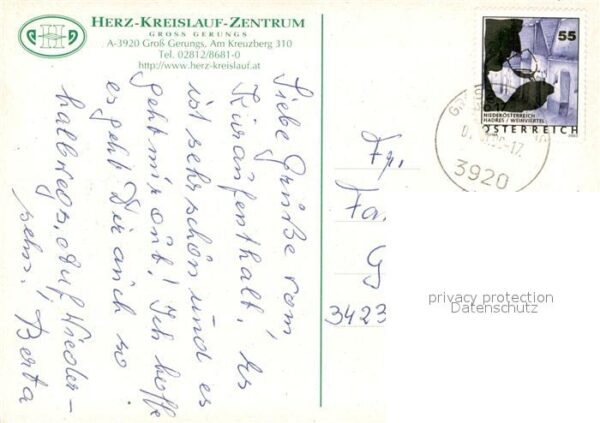 HERZ-KREISLAUF-ZENTRUM
GROSS GERUNGS
A-3920 Groß Gerungs, Am Kreuzberg 310
Tel. 02812/8681-0
http://www.herz-kreislauf.at
Liebe Grüße vom
Kuraufenthalt. Es
ist sehr schön und es
geht mir gut! Ich hoffe
es geht Dir auch so
halbwegs. Auf Wieder-
sehn! Berta
55
NIEDERÖSTERREICH
HADRES / WEINVIERTEL
ÖSTERREICH
3920
Fr.
Fa
G
3423
privacy protection
Datenschutz